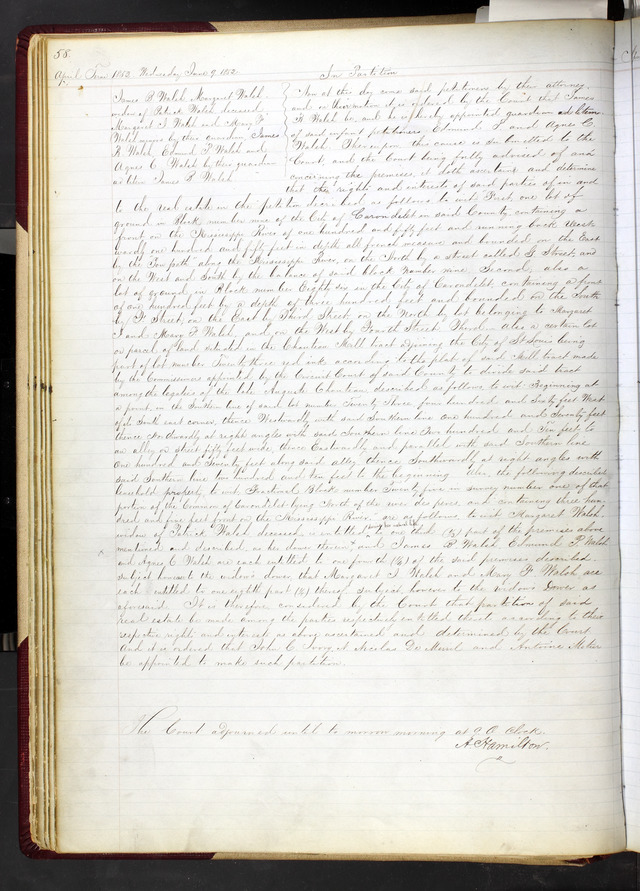 58.
April Term 1852. Wednesday June 9. 1852.
In Partition
James B Walsh, Margaret Walsh
widow of Patrick Walsh deceased
Margaret I Walsh and Mary F
Walsh minors by their guardian James
B Walsh, Edmund P Walsh and
Agnes C Walsh by their guardian
ad litem James B Walsh
Now at this day come said petitioners by their attorney
and on their motion it is ordered by the Court that James
B Walsh be and he is hereby appointed guardian ad litem
of said infant petitioners, Edmund P and Agnes C.
Walsh. Thereupon this cause is submitted to the
Court, and the Court being fully advised of and
concerning the premises, it doth ascertain and determine
that the rights and interests of said parties of in and
to the real estate in the petition described as follows to wit: First one lot of
ground in Block number nine of the City of Carondelet in said County, containing a
front on the Mississippi River of one hundred and fifty feet and running back West-
wardly one hundred and fifty feet in depth all french measure and bounded on the East
by the Tow path along the Mississippi River, on the North by a street called G Street and
on the West and South by the balance of said block number nine. Second, also a
lot of ground in Block number Eighty six in the City of Carondelet containing a front
of one hundred feet by a depth of three hundred feet and bounded on the South
by F Street, on the East by Third Street, on the North by lot belonging to Margaret
I and Mary F Walsh, and on the West by Fourth Street. Third. Also a certain lot
or parcel of land situated in the Chouteau Mill tract adjoining the City of St Louis being
part of lot number Twenty three red ink according to the plat of said Mill tract made
by the Commissioners appointed by the Circuit Court of said County to divide said tract
among the legatees of the late Auguste Chouteau described as follows, to wit: Beginning at
a point, in the Southern line of said lot number Twenty Three four hundred and Sixty feet West
of its South east corner, thence Westwardly with said Southern line One hundred and Seventy feet
thence Northwardly at right angles with said Southern line Two hundred and Ten feet to
an alley or street fifty feet wide, thence Eastwardly and parallel with said Southern line
One hundred and Seventy feet along said alley thence Southwardly at right angles with
said Southern line two hundred and ten feet to the beginning. Also the following described
leasehold property, to wit, Fractional Block number Twenty five in survey number one of that
portion of the Common of Carondelet lying North of the river des peres and containing three hun-
dred and five feet front on the Mississippi River, are as follows to wit Margaret Walsh
widow of Patrick Walsh deceased is entitled to one third (1/3) part of the premises above
mentioned and described, as her dower therein, and James B Walsh Edmund P Walsh
and Agnes C Walsh are each entitled to one fourth (1/4) of the said premises described
subject however to the widows dower, that Margaret I Walsh and Mary F Walsh are
each entitled to one eighth part (1/8) thereof subject however to the widows Dower as
aforesaid. It is therefore considered by the Court that partition of said
real estate be made among the parties respectively entitled thereto according to their
respective rights and interest as above ascertained and determined by the Court.
And it is ordered that John C Ivory, Nicolas De Menil and Antoine
be appointed to make such partition.
The Court adjourned until to morrow morning at 9 O Clock.
A. Hamilton.